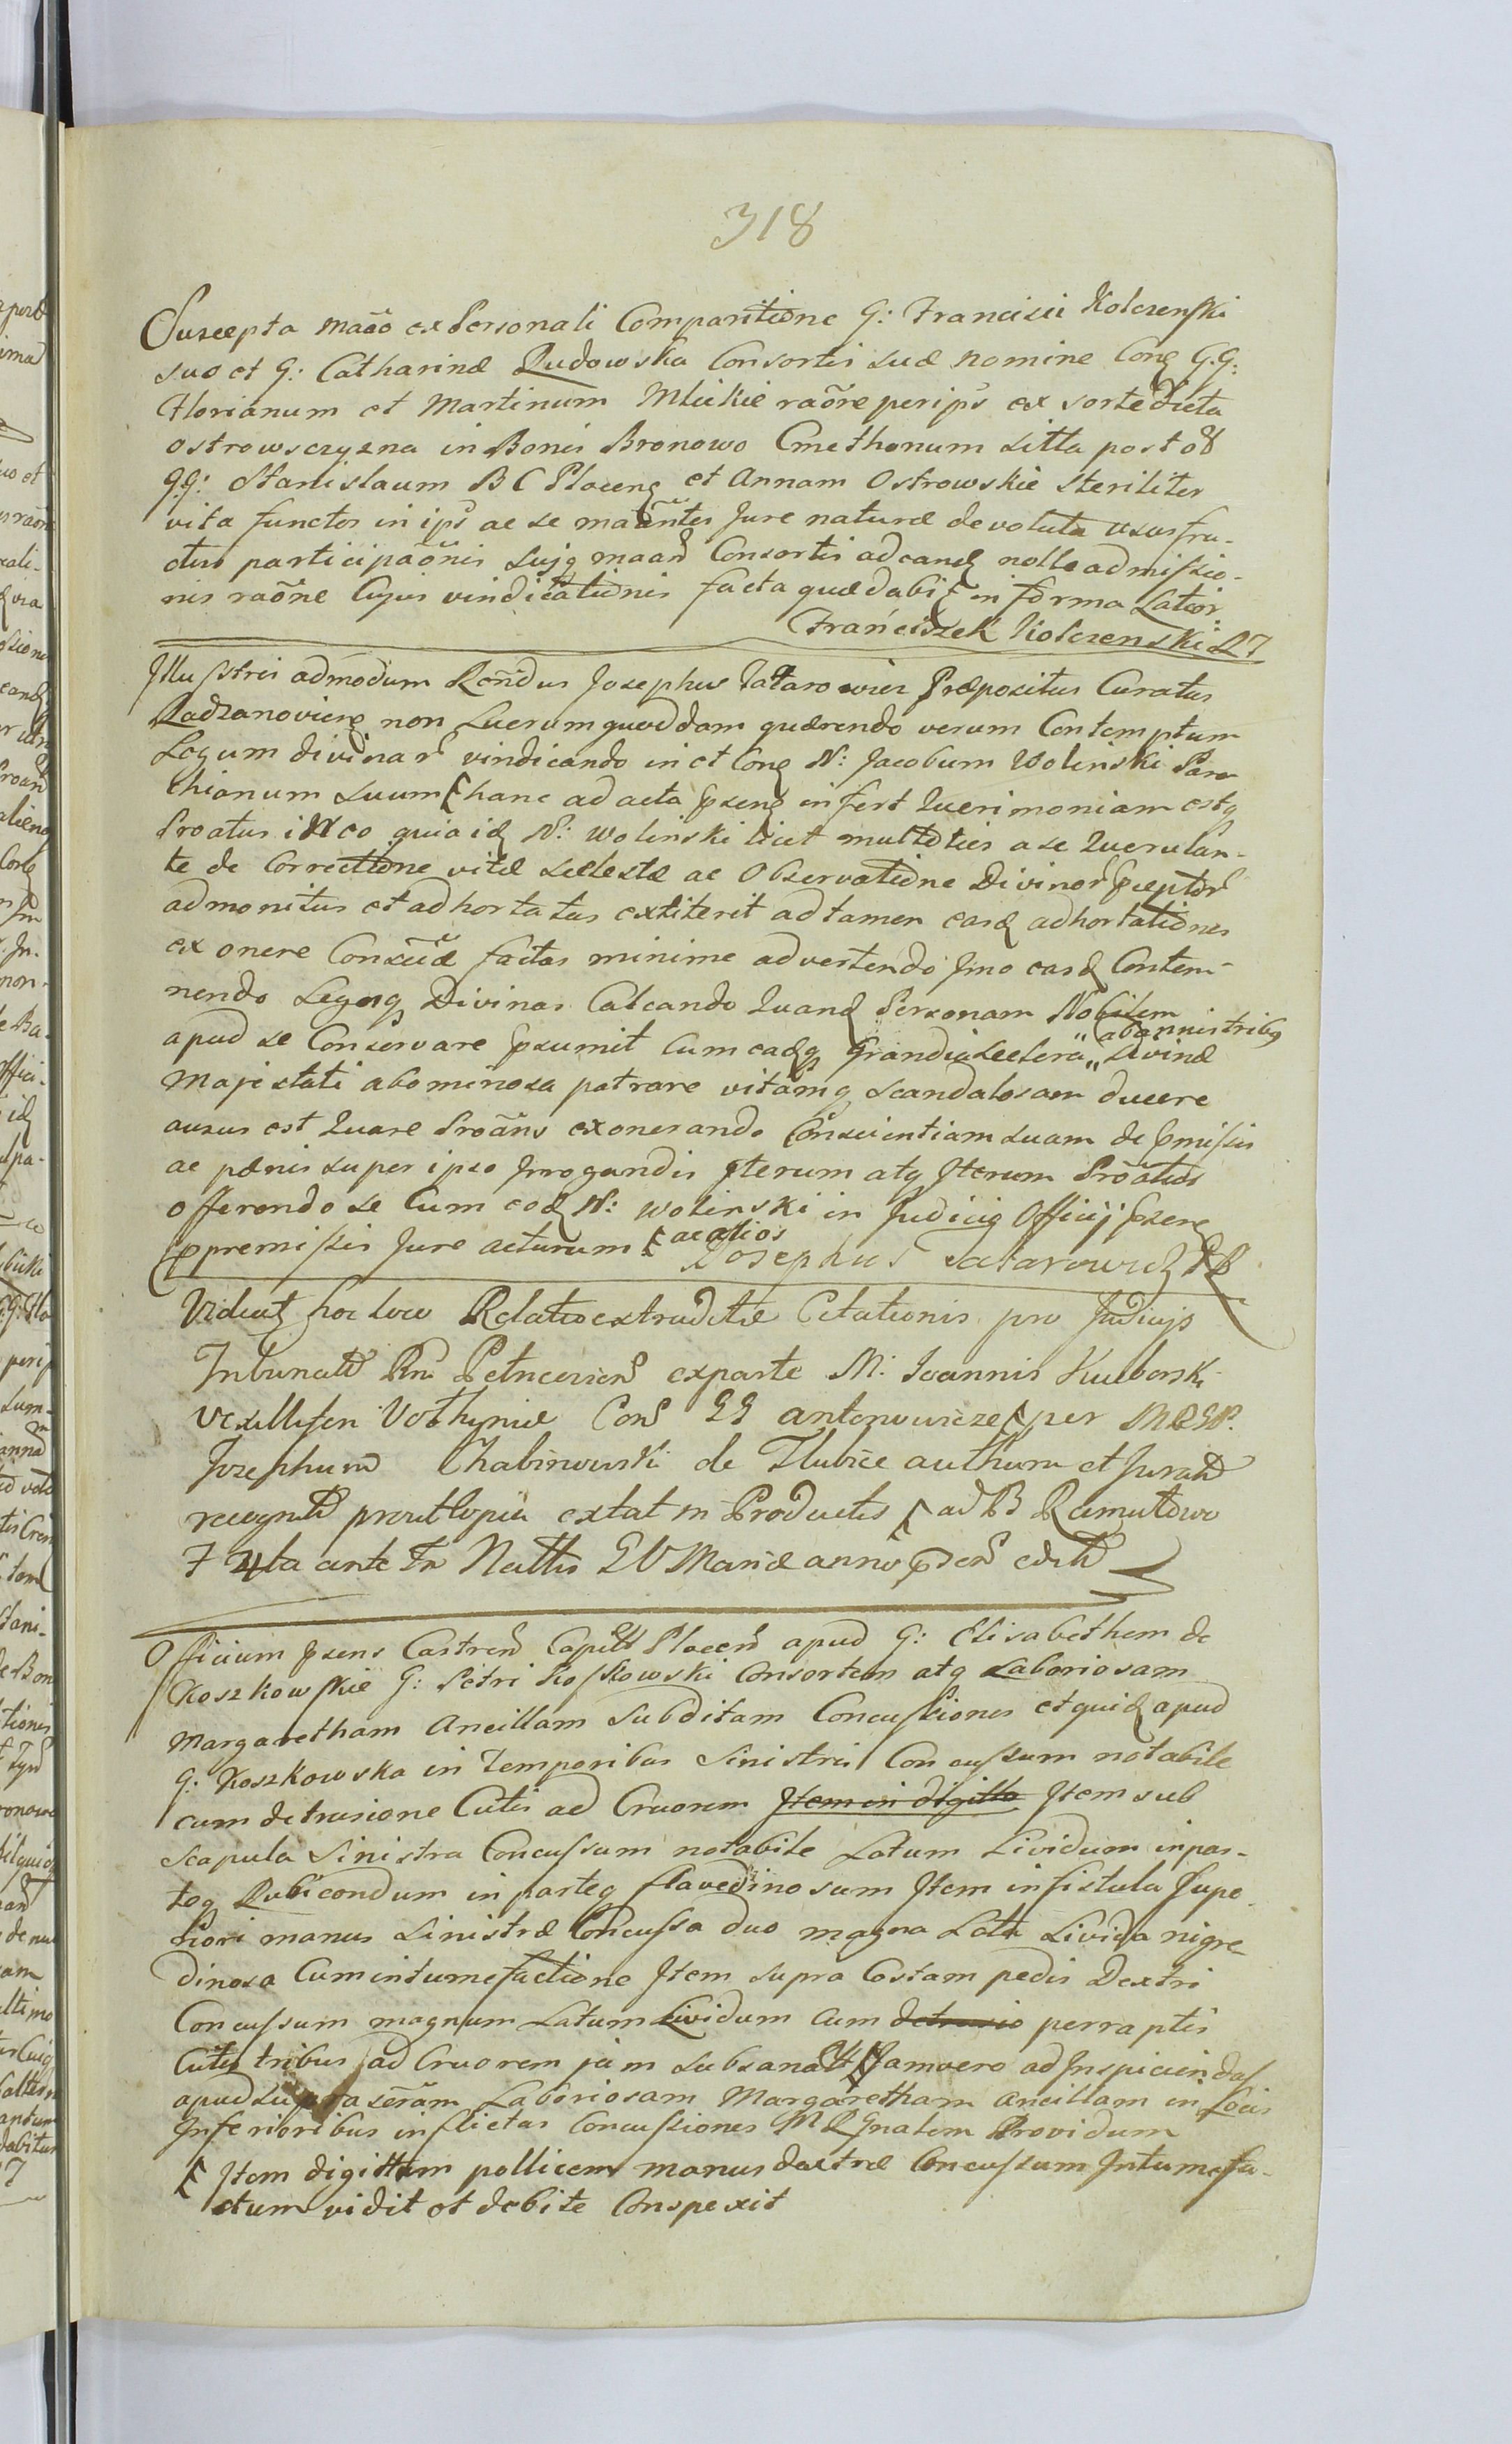 318
Suscepta maão ex Personali Comparitione G: Francisci Kolczenski
suo et G: Catharinæ Rudowska Consortis suæ nomine Conq G.G:
Florianum et Martinum Mlickie raõne per ips ex sorte dicta
Ostrowsczyzna in Bonis Bronowo Cmethonum sitta post os
G.G: Stanislaum B C Plocenq et Annam Ostrowskie steriliter
vita functos in ips ac se maãntes Jure naturæ devoluta usus fru-
ctus participaõnis sujq maan Consortis ad eand nolle admissio-
nis raõne Cujus vindicationis facta quæ dabi in forma Latior
Franciszek Kolczenski
Illustris admodum Rendus Josephus Tatarowicz Præpositus Curatus
Radzanoviens non Lucrum quoddam quærendo verum Contemptum
Legum divinar vindicando in et Conq N: Jacobum Wolinski Paro
chianum suum hanc ad acta pzens infert Querimoniam estq
Proatus in eo quia id N: Wolinski licet multoties a se Querulan-
te de Correctione vitæ scelestæ ac Observatione Divinor pceptor
admonitus et adhortatus extiterit ad tamen easd adhortationes
ex onere Consciæ factas minime advertendo Imo easd Contem-
nendo Legesq Divinas Calcando Quand Personam Nobilem
apud se Conservare psumit Cum eadq grandia scelera " ab annis tribq " Divinæ
Majestati abominosa patrare vitamq scandalosam ducere
ausus est Quare Proãns exonerando Conscientiam suam de pmissis
ac pænis super ipso Irrogandis Iterum atq Iterum Proãtus
offerendo se Cum eod N: Wolinski in Judiciq Officij pzens
premissis Jure acturum ac alios
Josephus Tatarowicz
Videatq hoc loco Relatio extraditæ Citationis pro Judicijs
Petricovien ex parte M: Joannis Kuczborski
Vexilliferi Volhyniæ Con GG antonowicze per
Josephum Chabinowski de Tlubice authum et Jurat
recognit prout Copia extat in Productis ad B Ramutowo
F 4ta ante Fr Nattis BV Mariæ anno pzen edit
Officium pzens Castren Capitt Plocen apud G: Elisabetham de
Koszkowskie G: Petri Koszkowski Consortem atq Laboriosam
Margaretham Ancillam subditam Concussiones et quid apud
G: Koszkowska in Temporibus sinistris Concussum notabile
cum detrusione Cutis ad Cruorem Item in digitto Item sub
scapula sinistra Concussum notabile Latum Lividum in par-
teq Rubicondum in parteq flavedinosum Item in fistula Supe-
riori manus sinistræ Concussa duo magna Lata Livida nigre-
dinosa Cum intumefactione Item supra Costam pedis Dextri
Concussum magnum Latum Lividum cum detrusio perraptis
Cutis tribus ad Cruorem jam subsanatis Jam vero ad Inspiciendas
apud Laboriosam Margaretham Ancillam in Locis
Inferioribus inflictas Concussiones Providum
Item digittum pollicem manus dextræ Concussum Intumefa-
ctum vidit et debite Conspexit